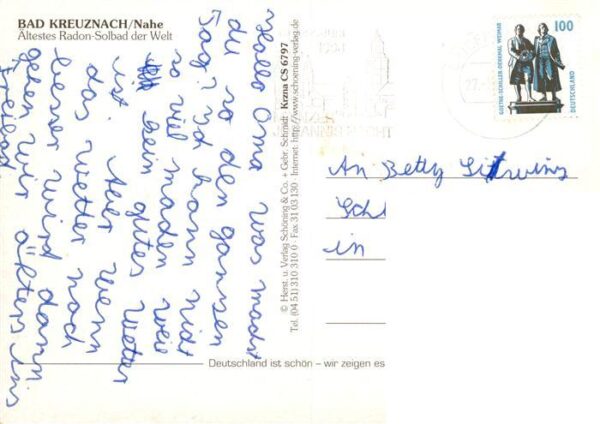 BAD KREUZNACH/Nahe
Ältestes Radon-Solbad der Welt
Hallo Oma was machst
du so den gansen
Tag? Ich kann nicht
so viel machen weil
kein gutes Wetter
ist. Aber wenn
das wetter noch
besser wird dann
gehen wir öfters ins
Freibad
© Herst. u. Verlag Schöning & Co. + Gebr. Schmidt · Krzna CS 6797
Tel. (04 51) 310 310 0 · Fax 31 03 130 · Internet: http://www.schoening-verlag.de
100
GOETHE-SCHILLER-DENKMAL WEIMAR
DEUTSCHLAND
An Betty
Sch
in
Deutschland ist schön – wir zeigen es